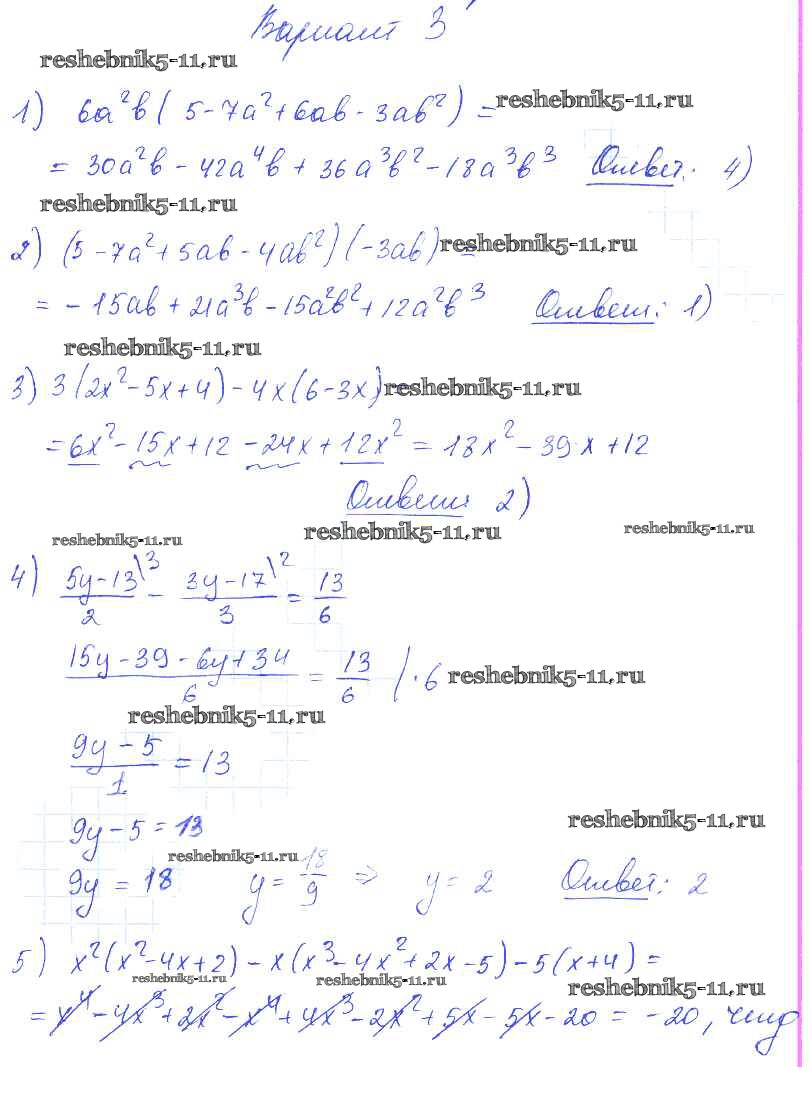 Вариант 3
reshebnik5-11.ru
1) 6a²b(5-7a²+6ab-3ab²) = reshebnik5-11.ru
= 30a²b - 42a⁴b + 36a³b² - 18a³b³ Ответ: 4)
reshebnik5-11.ru
2) (5-7a²+5ab-4ab²)(-3ab) = reshebnik5-11.ru
= -15ab + 21a³b - 15a²b² + 12a²b³ Ответ: 1)
reshebnik5-11.ru
3) 3(2x²-5x+4) - 4x(6-3x) = reshebnik5-11.ru
= 6x² - 15x + 12 - 24x + 12x² = 18x² - 39x + 12
Ответ 2)
reshebnik5-11.ru reshebnik5-11.ru reshebnik5-11.ru
4) (5y-13)/2 \3 - (3y-17)/3 \2 = 13/6
(15y-39-6y+34)/6 = 13/6 | ·6 reshebnik5-11.ru
reshebnik5-11.ru
(9y-5)/1 = 13
9y-5 = 13 reshebnik5-11.ru
reshebnik5-11.ru
9y = 18 y = 18/9 ⇒ y = 2 Ответ: 2
5) x²(x²-4x+2) - x(x³-4x²+2x-5) - 5(x+4) =
reshebnik5-11.ru reshebnik5-11.ru reshebnik5-11.ru
= x⁴ - 4x³ + 2x² - x⁴ + 4x³ - 2x² + 5x - 5x - 20 = -20,